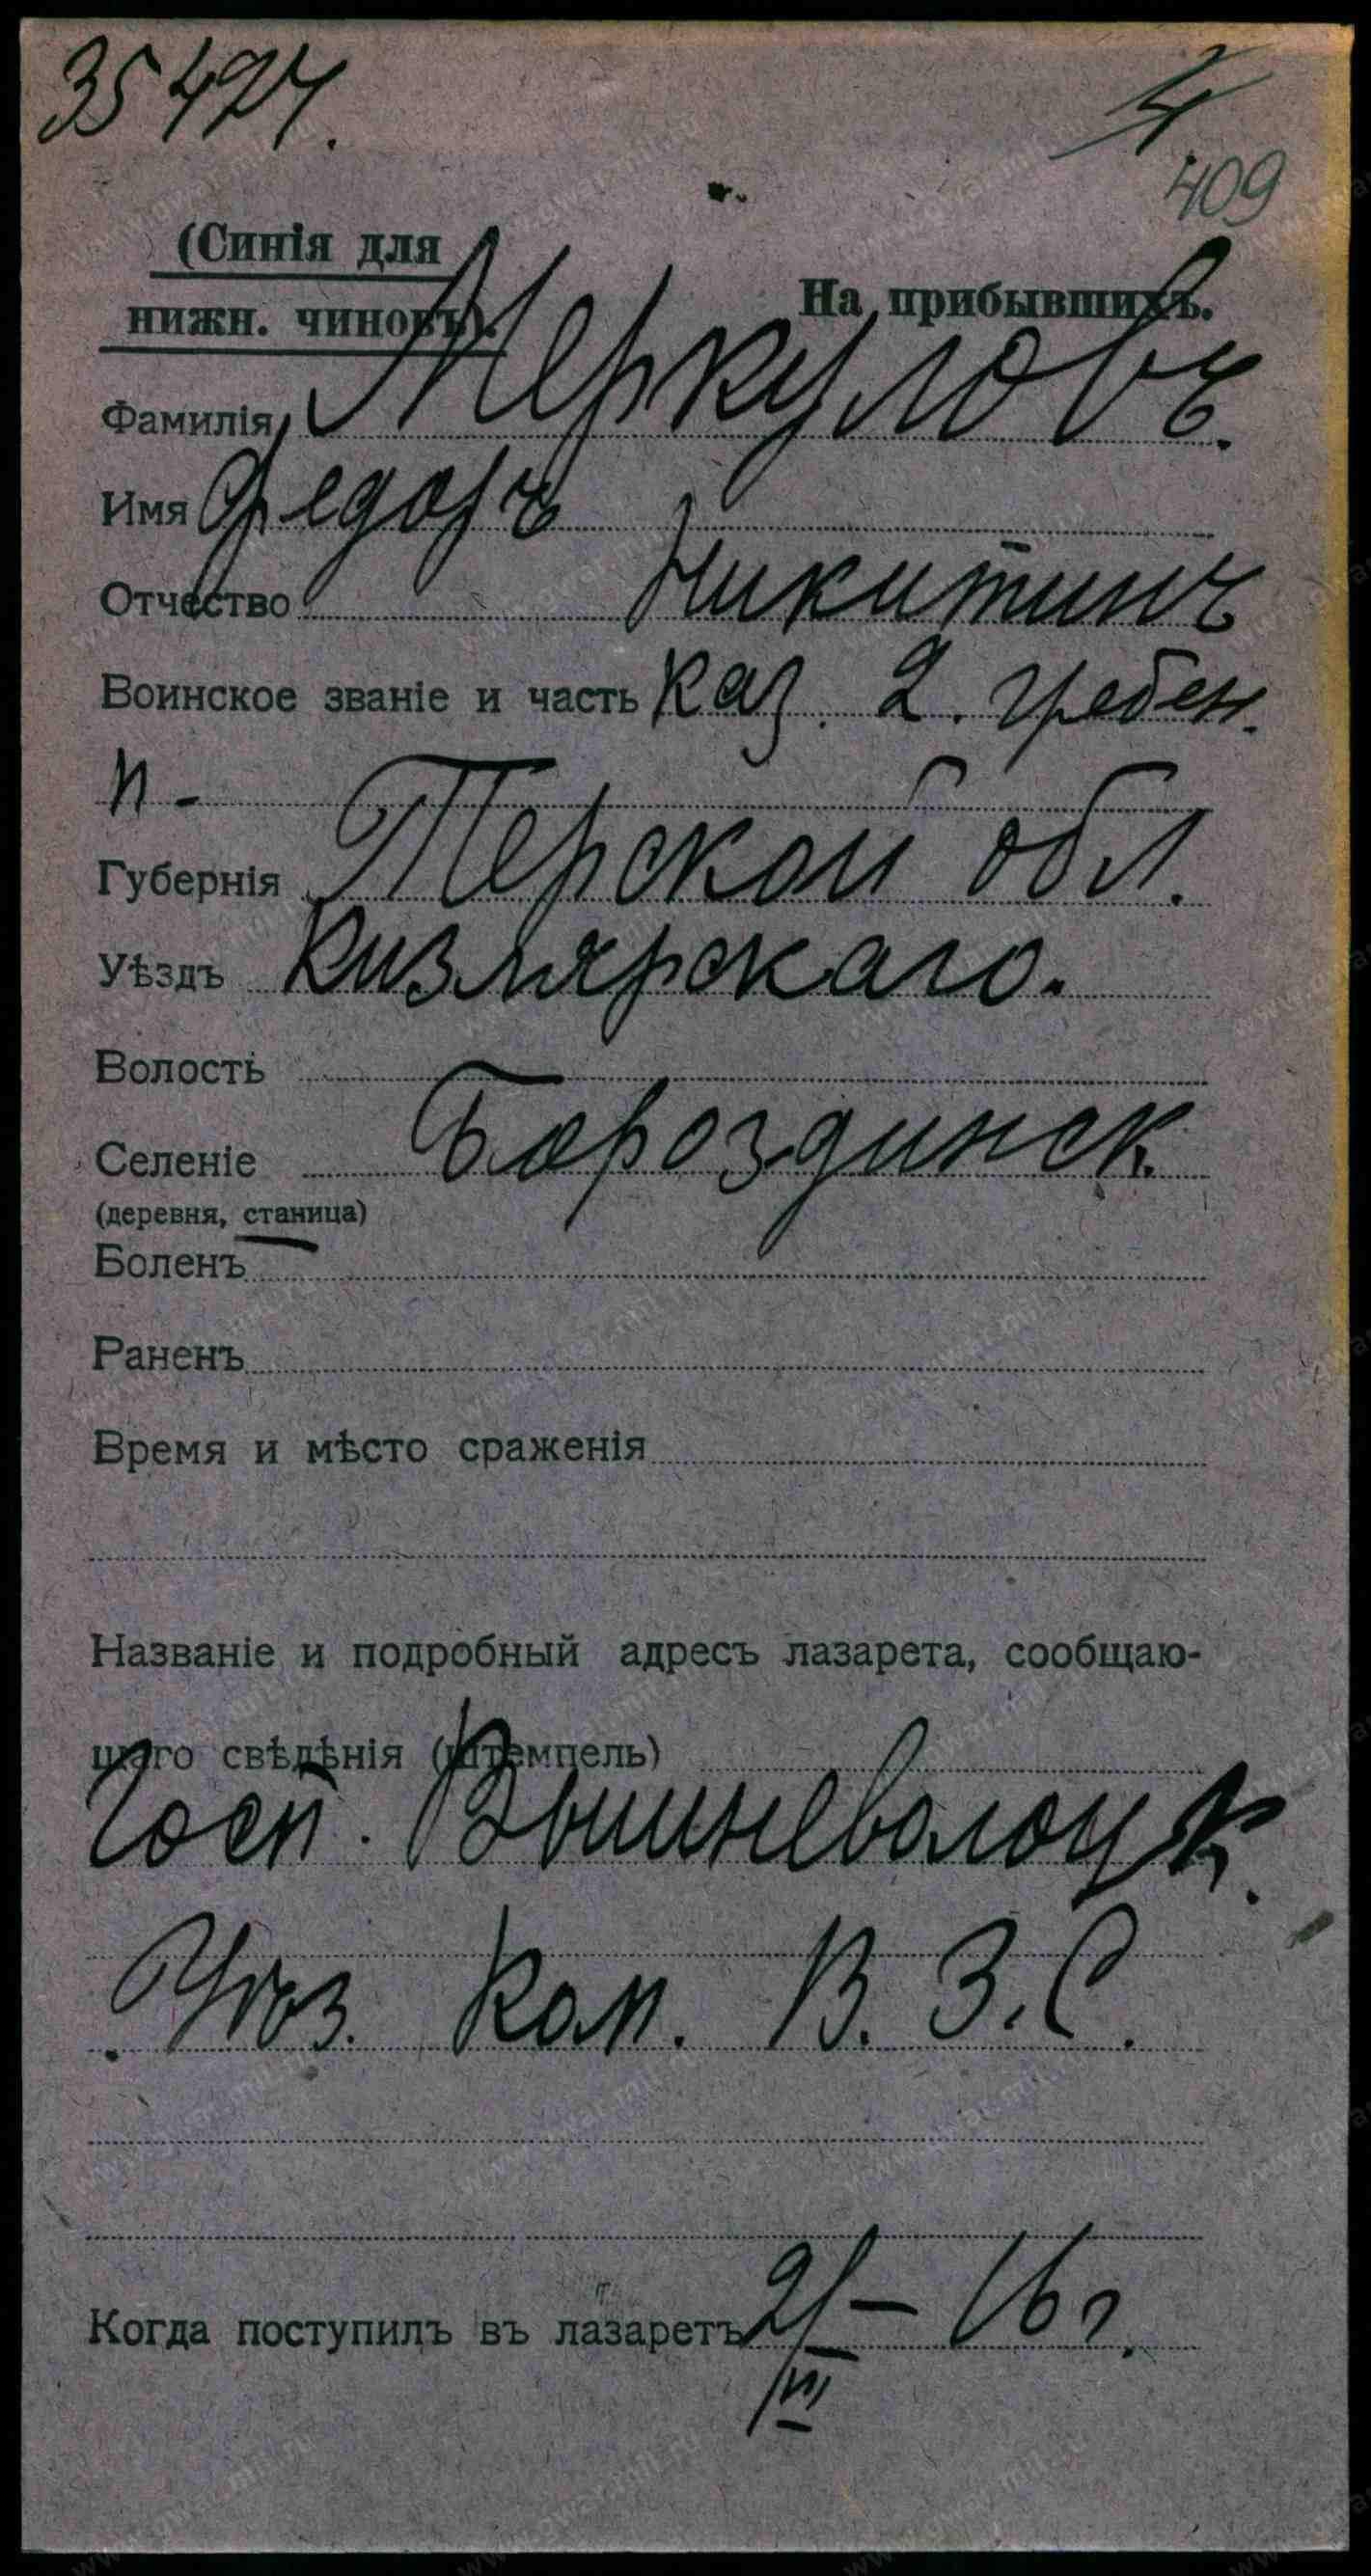 35424.
4
409
(Синія для
нижн. чиновъ).
На прибывшихъ.
Фамилія Меркуловъ.
Имя Федоръ
Отчество Никитинъ
Воинское званіе и часть Каз. 2. Гребен.
п-
Губернія Терской обл.
Уѣздъ Кизлярскаго.
Волость
Селеніе Бороздинск.
(деревня, станица)
Боленъ
Раненъ
Время и мѣсто сраженія
Названіе и подробный адресъ лазарета, сообщаю-
щаго свѣдѣнія (штемпель)
Госп. Вышневолоцк.
Уѣз. Ком. В. З. С.
Когда поступилъ въ лазаретъ 21/III – 16 г.